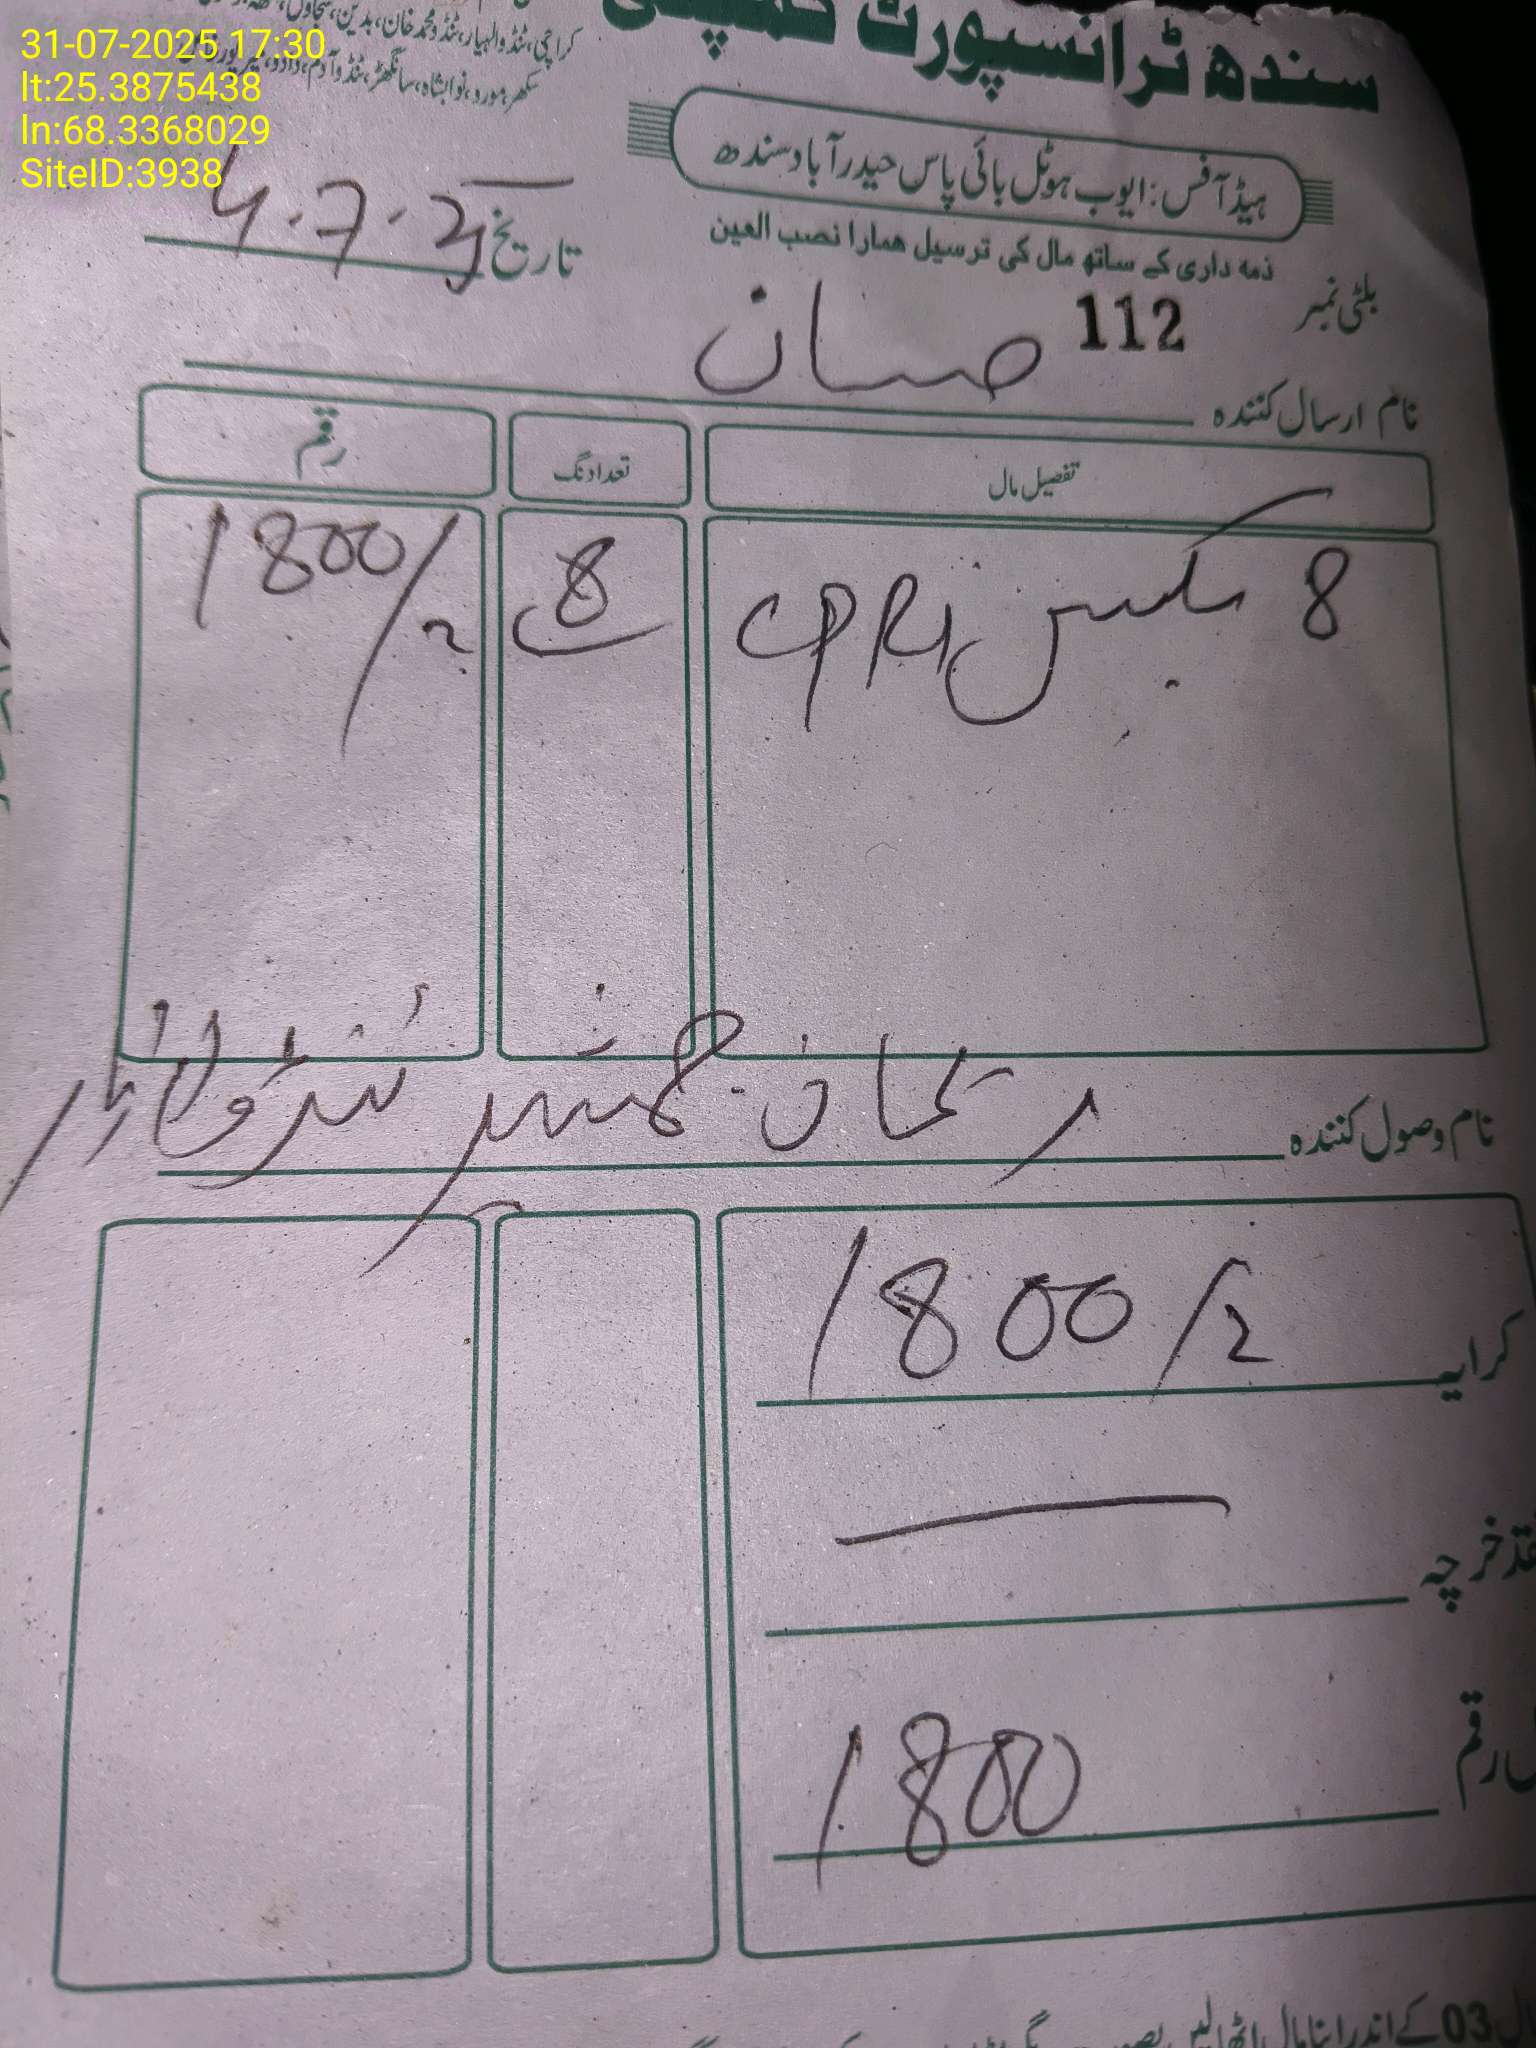 31-07-2025 17:30
lt:25.3875438
ln:68.3368029
SiteID:3938
سندھ ٹرانسپورٹ کمپنی
کراچی، ٹنڈوالہیار، ٹنڈو محمد خان، بدین، سجاول،
سکھر، مورو، نوابشاہ، سانگھڑ، ٹنڈوآدم، دادو،
ہیڈ آفس: ایوب ہوٹل بائی پاس حیدرآباد سندھ
ذمہ داری کے ساتھ مال کی ترسیل ہمارا نصب العین
بلٹی نمبر 112
تاریخ 4.7.25
نام ارسال کنندہ
تفصیل مال تعداد نگ رقم
8 بکس CPRI 8 1800/2
نام وصول کنندہ ریحان جمشیر ٹنڈوالہیار
کرایہ 1800/2
نقد خرچہ
رقم 1800
03 کے اندر اپنا مال اٹھالیں بصورت